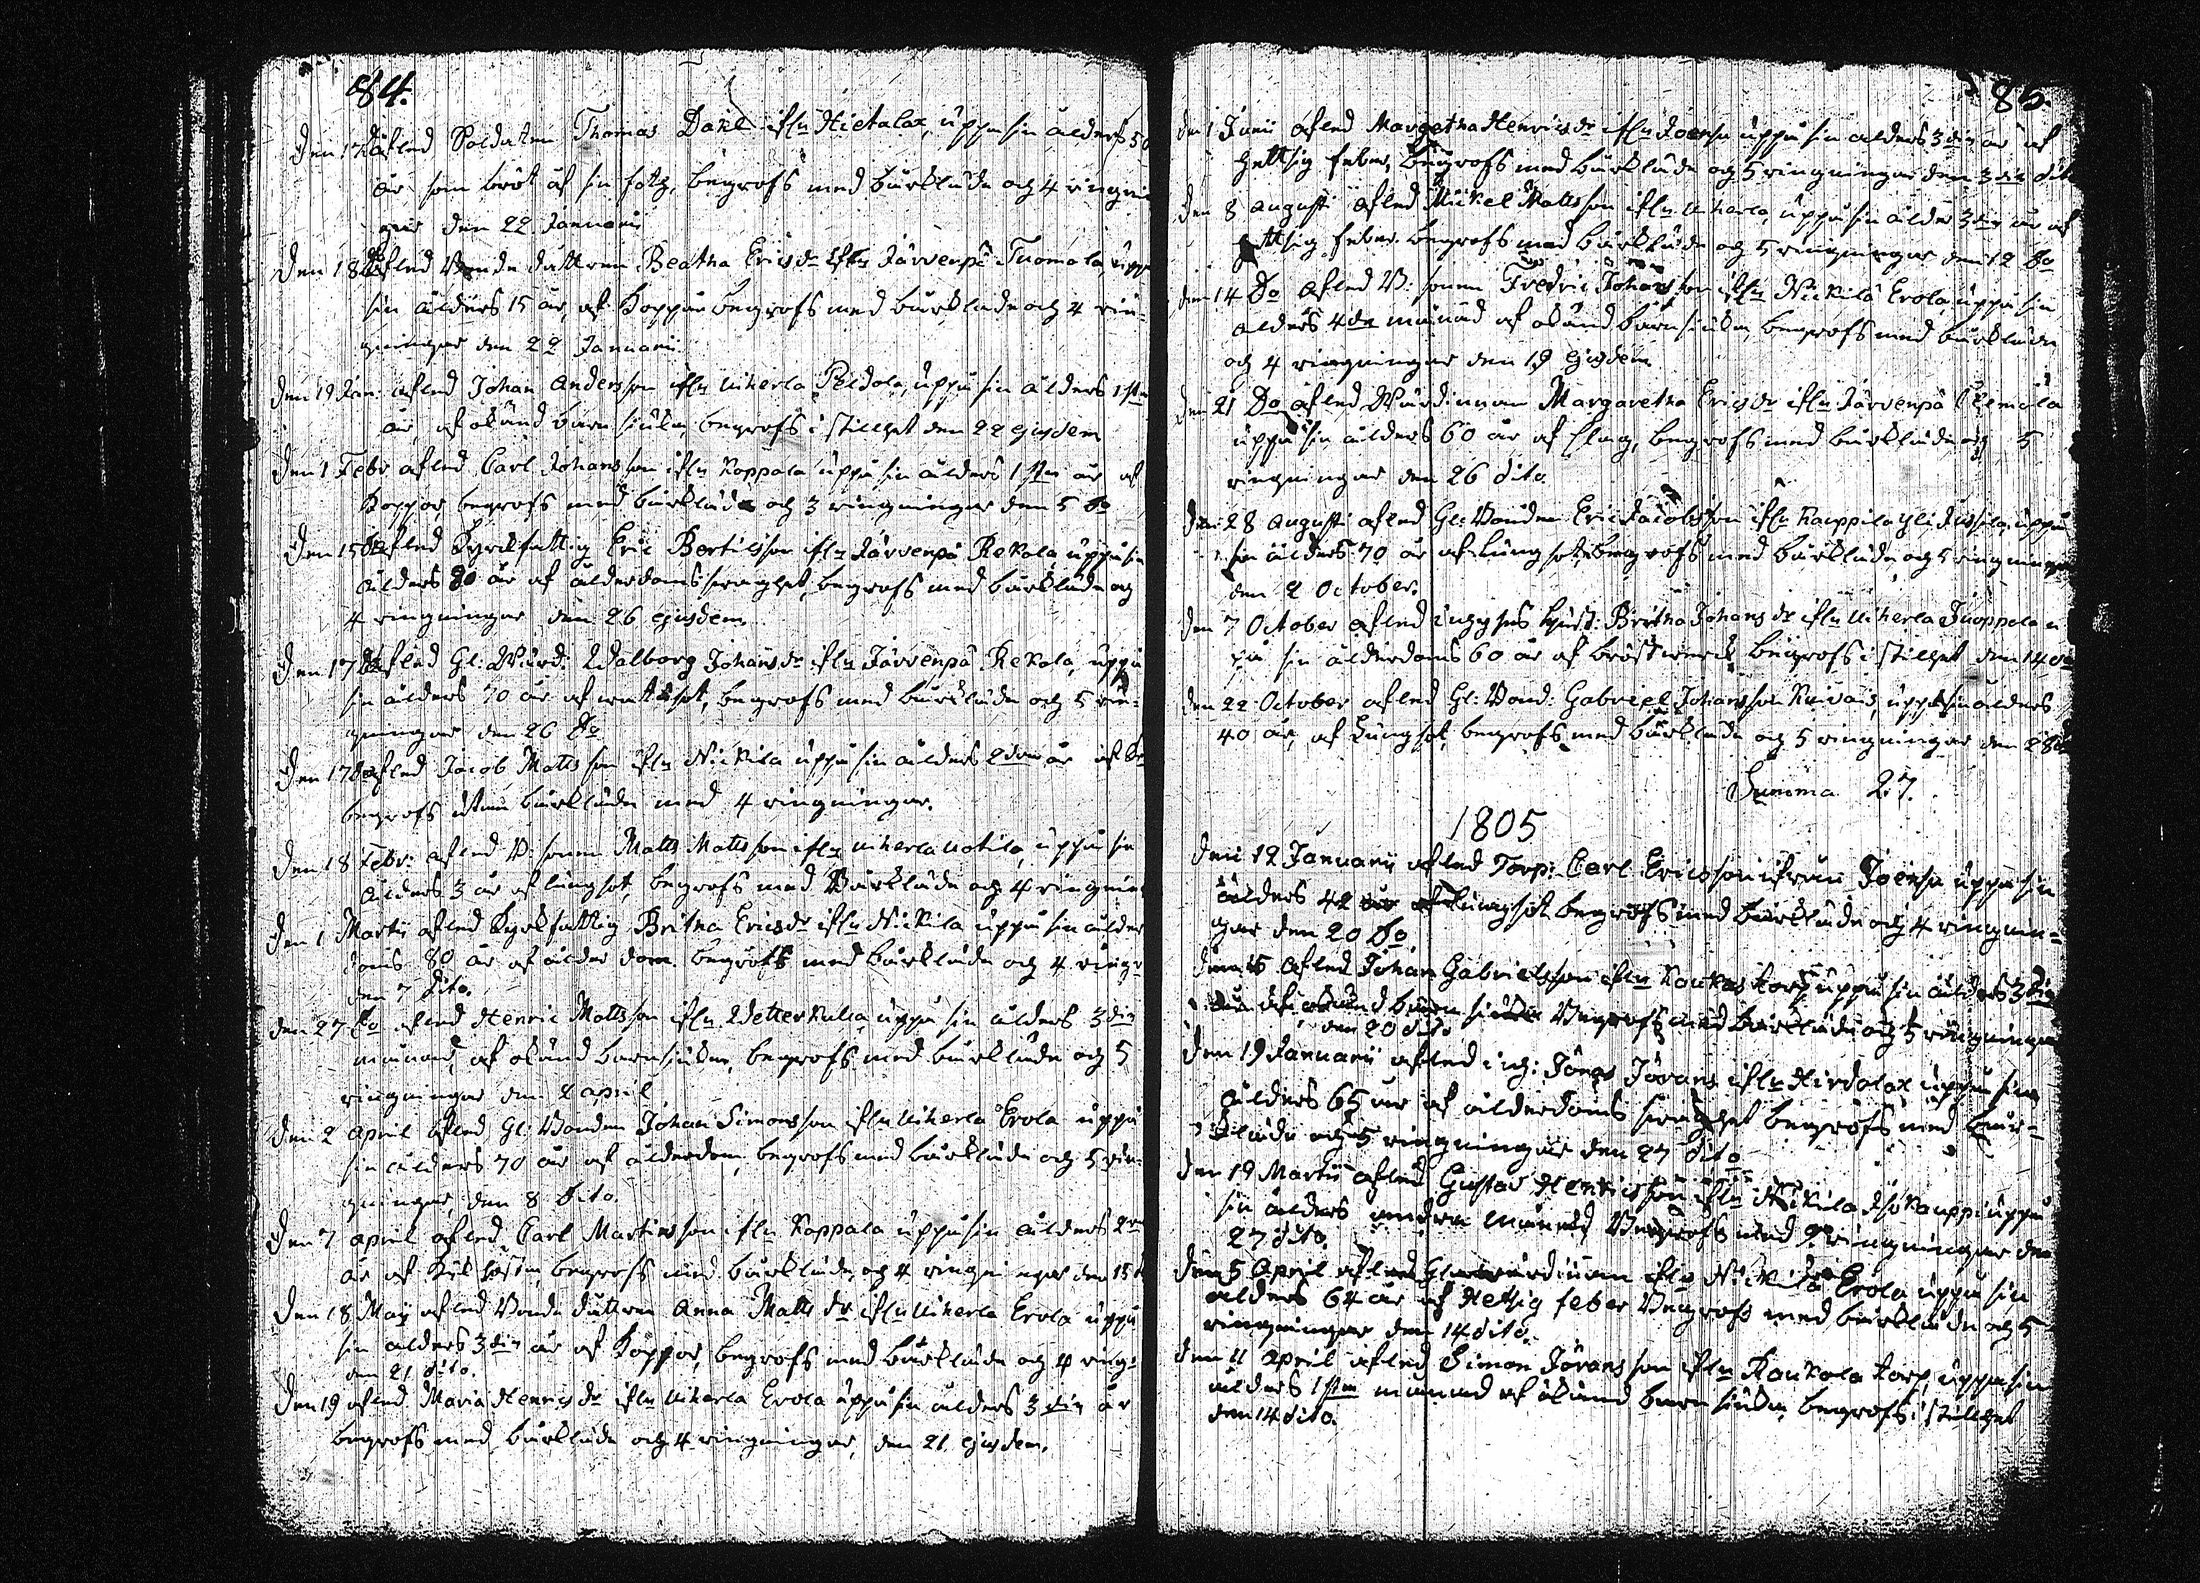 84.
Den 17 Do afled Soldaten Thomas Dahl ifrn Hietalax, uppå sin ålders 50
år som bröt af sin fot, begrofs med bårkläde och 4 ringnin
gar den 22 Januarii
Den 18 Do afled Bonde dottren Beatha Ericsdr ifrn Järvenpä Tuomala, uppå
sin ålders 15 år, af Koppor begrofs med bårkläde och 4 rin-
gningar den 22 Januarii
Den 19 Jan: afled Johan Andersson ifrn Uiherla Peldola, uppå sin ålders 1sta
år, af okänd barnsiuka, begrofs i stillhet den 22 ejusdem
Den 1 Febr afled Carl Johansson ifrn Koppala uppå sin ålders 1sta år af
Koppor begrofs med bårkläde och 3 ringningar den 5 Do
Den 15 Do afled Kyrkfattig Eric Bertilsson ifrn Järvenpä Rekola uppå sin
ålders 80 år af ålderdoms svaghet, begrofs med bårkläde och
4 ringningar den 26 ejusdem
Den 17 Do afled Gl: Wärd: Walborg Johansdr ifrn Järvenpä Rekola, uppå
sin ålders 70 år af wattusot, begrofs med bårkläde och 5 rin-
gningar den 26 Do
Den 17 Do afled Jacob Mattsson ifrn Nickila uppå sin ålders 2dra år af
begrofs utan bårkläde med 4 ringningar.
Den 18 Febr: afled B: sonen Matts Mattsson ifrn Uiherla Uotila, uppå sin
ålders 3 år af lungsot, begrofs med Bårkläde och 4 ringnin
Den 1 Martii afled Kyrkfattig Britha Ericsdr ifrn Nickila uppå sin ålder
doms 80 år af ålderdom begrofs med bårkläde och 4 ring-
den 7 Dito.
Den 27 Do afled Henric Mattsson ifrn Wetterkulla, uppå sin ålders 3die
månad, af okänd barnsiuka, begrofs med bårkläde och 5
ringningar den 2 april
Den 2 April afled Gl: Bonden Johan Simonsson ifrn Uiherla Erola uppå
sin ålders 70 år af ålderdom, begrofs med bårkläde och 5 rin-
gningar, den 8 Dito.
Den 7 april afled Carl Martinsson ifrn Koppala uppå sin ålders 2ra
år af Kikhosta, begrofs med bårkläde, och 4 ringningar den 15
Den 18 Maij afled Bonde dottren Anna Mattsdr ifrn Uiherla Erola uppå
sin ålders 3die år af Koppor, begrofs med bårkläde och 4 ring:
den 21 dito.
Den 19 afled Maria Henricsdr ifrn Uiherla Erola uppå sin ålders 3die år
begrofs med bårkläde och 4 ringningar, den 21 ejusdem.
85.
Den 1 Junii afled Margetha Henricsdr ifrn Joensu uppå sin ålders 3die år af
hettsig feber, begrofs med bårkläde och 5 ringningar den 3die dito
Den 8 Augusti afled Mickel Mattsson ifrn Uiherla, uppå sin ålder 3die år af
hettsig feber. begrofs med bårkläde och 5 ringningar den 12 Do
Den 14 Do afled B: sonen Fredric Johansson ifrn Nickilä Erola, uppå sin
ålders 4de månad af okänd barnsiuka, begrofs med bårkläde
och 4 ringningar den 19 ejusdem
Den 21 Do afled Wärdinnan Margaretha Ericsdr ifrn Järvenpä
uppå sin ålders 60 år af slag, begrofs med bårkläde och 5
ringningar den 26 dito.
Den 28 Augusti afled Gl: Bonden Eric Jacobsson ifrn uppå
sin ålders 70 år af Lungsot, begrofs med bårkläde och 5 ringningar
den 2 October.
Den 7 October afled Britha Johansdr ifrn Uiherla u
på sin ålderdoms 60 år af bröstwerck, begrofs i stillhet den 14 do
Den 22 October afled Gl: Bond: Gabriel Johansson uppå sin ålders
40 år, af Lungsot, begrofs med bårkläde och 5 ringningar den 28
Summa 27.
1805
Den 12 Januarii afled Torp: Carl Ericsson ifrån Joensu uppå sin
ålders 42 år af Lungsot begrofs med bårkläde och 4 ringnin-
gar den 20 Do
Den 15 afled Johan Gabrielsson ifrn torp uppå sin ålders 3die
år af okänd barnsiuka begrofs med bårkläde och 5 ringningar
den 20 dito
Den 19 Januarii afled inh: Jöran ifrn Hirdolax uppå sin
ålders 65 år af ålderdoms svaghet begrofs med bår-
kläde och 5 ringningar den 27 Dito
Den 19 Martii afled Gustav Henricsson ifrn Nikila uppå
sin ålders andra månad begrofs med ringningar den
27 dito.
Den 5 April afled Gl. wärdinnan ifrn Erola uppå sin
ålders 64 år af Hettsig feber begrofs med bårkläde och 5
ringningar den 14 dito.
Den 11 April afled Simon Jöransson ifrn torp, uppå sin
ålders 1sta månad af okänd barnsiuka, begrofs i stillhet
den 14 dito.